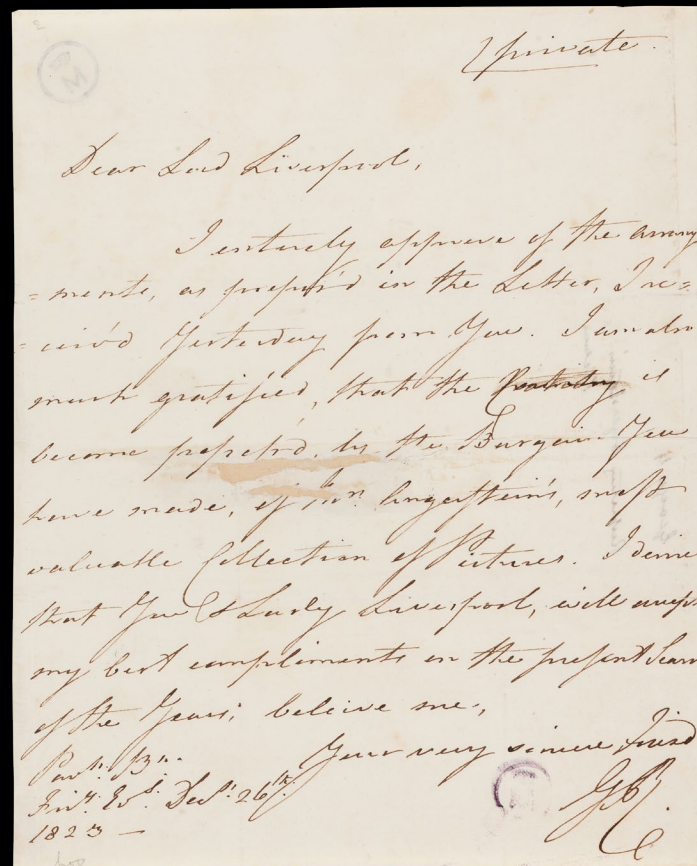 private
Dear Lord Liverpool,
I entirely approve of the arrange
=ments, as propos'd in the Letter, I re=
=ceiv'd Yesterday from You. I am also
much gratified, that the is
become possess'd, by the Bargain You
have made, of Mr. Angerstein's, most
valuable Collection of Pictures. I desire
that You & Lady Liverpool, will accept
my best compliments on the present Season
of the Year; beleive me,
Your very sincere friend
G.R.
Pavn. Bn.
Friy. Evg. Decr. 26th.
1823 —